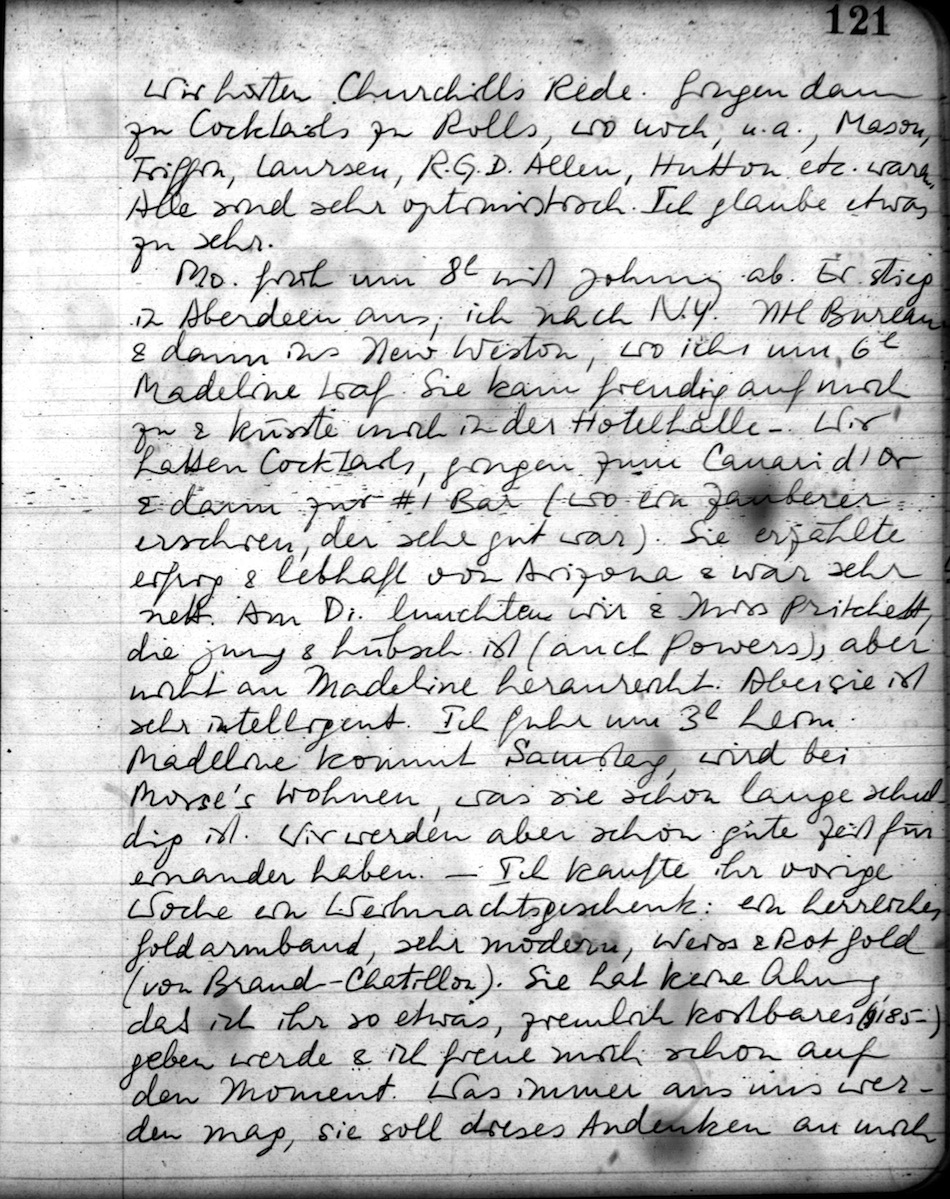 121
Wir hörten Churchills Rede. Gingen dann
zu Cocktails zu Rolls, wo noch, u.a., Mason,
Triffin, Laursen, R.G.D. Allen, Hutton etc. waren.
Alle sind sehr optimistisch. Ich glaube etwas
zu sehr.
Mo. früh um 8h mit Johnny ab. Er stieg
in Aberdeen aus, ich nach N.Y. Bureau
& dann ins New Weston, wo ich um 6h
Madeline traf. Sie kam freudig auf mich
zu & küsste mich in der Hotelhalle –. Wir
hatten Cocktails, gingen zum Canari d'Or
& dann zur #1 Bar (wo ein Zauberer
erschien, der sehr gut war). Sie erzählte
eifrig & lebhaft von Arizona & war sehr
nett. Am Di. lunchten wir & Miss Pritchett,
die jung & hübsch ist (auch Powers), aber
nicht an Madeline heranreicht. Aber sie ist
sehr intelligent. Ich fuhr um 3h heim.
Madeline kommt Samstag, wird bei
Morse's wohnen, was sie schon lange schul
dig ist. Wir werden aber schon gute Zeit für
einander haben. — Ich kaufte ihr vorige
Woche ein Weihnachtsgeschenk: ein herrliches
Goldarmband, sehr modern, Weiss & Rot Gold
(von Brand-Chatillon). Sie hat keine Ahnung
das ich ihr so etwas, ziemlich kostbares ($185–)
geben werde & ich freue mich schon auf
den Moment. Was immer aus uns wer-
den mag, sie soll dieses Andenken an mich